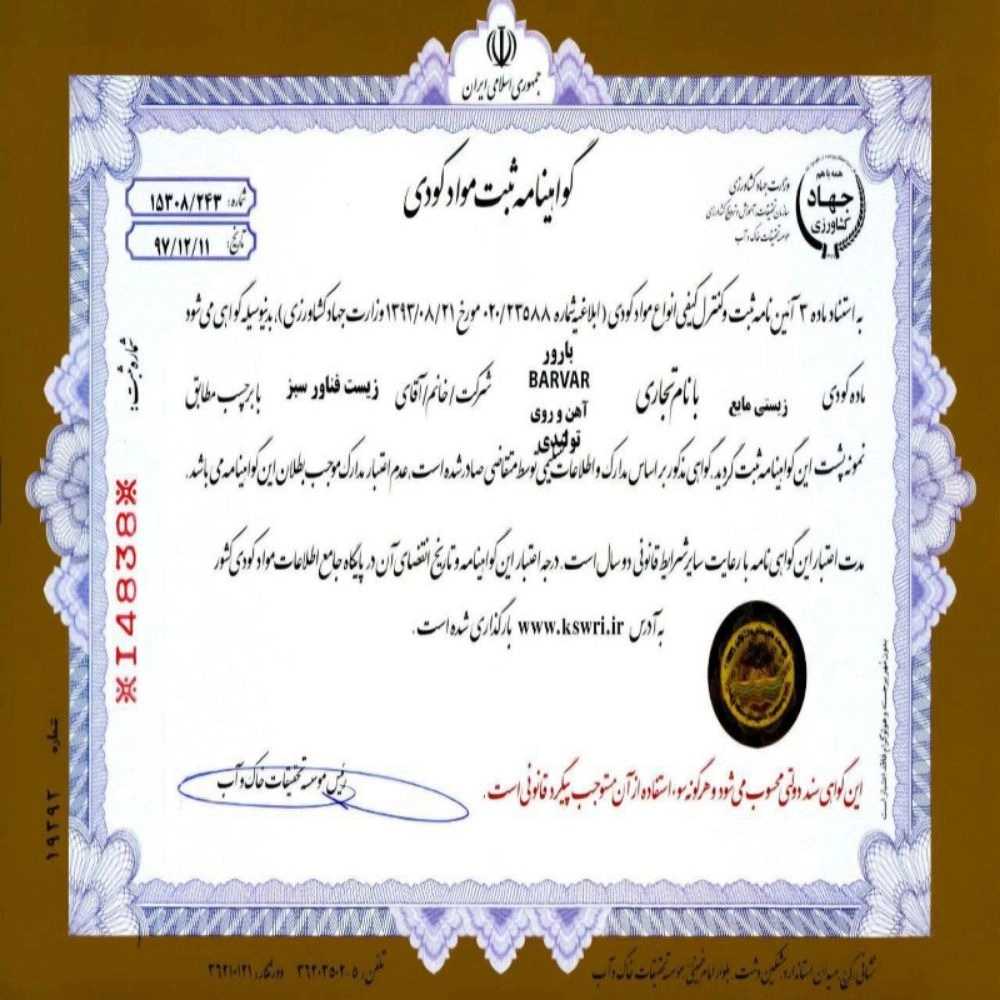 جمهوری اسلامی ایران
همه با هم
جهاد
کشاورزی
وزارت جهاد کشاورزی
سازمان تحقیقات، آموزش و ترویج کشاورزی
موسسه تحقیقات خاک و آب
گواهینامه ثبت مواد کودی
شماره: ۱۵۳۰۸/۲۴۳
تاریخ: ۹۷/۱۲/۱۱
به استناد ماده ۳ آئین نامه ثبت و کنترل کیفی انواع مواد کودی (ابلاغیه شماره ۰۲۰/۲۳۵۸۸ مورخ ۱۳۹۳/۰۸/۲۱ وزارت جهاد کشاورزی)، بدینوسیله گواهی می شود
ماده کودی زیستی مایع با نام تجاری بارور BARVAR آهن و روی تولیدی شرکت/خانم/آقای زیست فناور سبز با برچسب مطابق
نمونه پشت این گواهینامه ثبت گردید. گواهی مذکور بر اساس مدارک و اطلاعات توسط متقاضی صادر شده است. عدم اعتبار مدارک موجب بطلان این گواهینامه می باشد.
مدت اعتبار این گواهی نامه با رعایت سایر شرایط قانونی دو سال است. درجه اعتبار این گواهینامه و تاریخ انقضای آن در پایگاه جامع اطلاعات مواد کودی کشور
به آدرس www.kswri.ir بارگذاری شده است.
این گواهی سند دولتی محسوب می شود و هرگونه سوء استفاده از آن مستوجب پیگرد قانونی است.
رئیس موسسه تحقیقات خاک و آب
شماره ثبت:
※14838※
شماره ۱۹۲۹۲
بدون مهر برجسته و هولوگرام فاقد اعتبار است
نشانی: کرج، میدان استاندارد، مشکین دشت، بلوار امام خمینی، موسسه تحقیقات خاک و آب
تلفن: ۵-۳۶۲۰۳۵۰۲ دورنگار: ۳۶۲۱۰۱۲۱